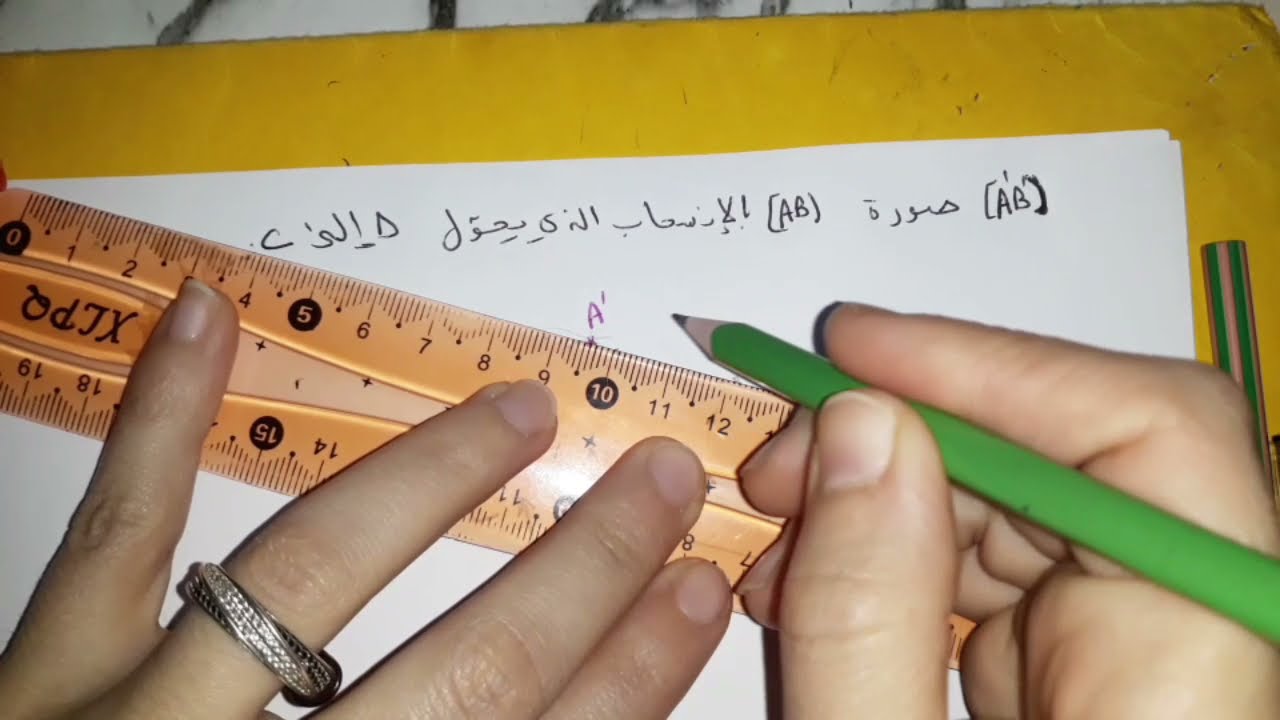 [A'B') صورة [AB) بالإنسحاب الذي يحوّل D إلى C.
A'
0 1 2 4 5 6 7 8 9 10 11 12
XLPQ
19 18 15 14 11 8 7